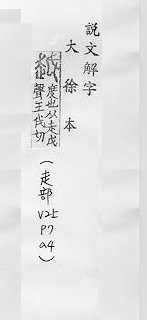 説文解字
大徐本
度也从走戉
聲王伐切
(走部
V2上
P7
a4)